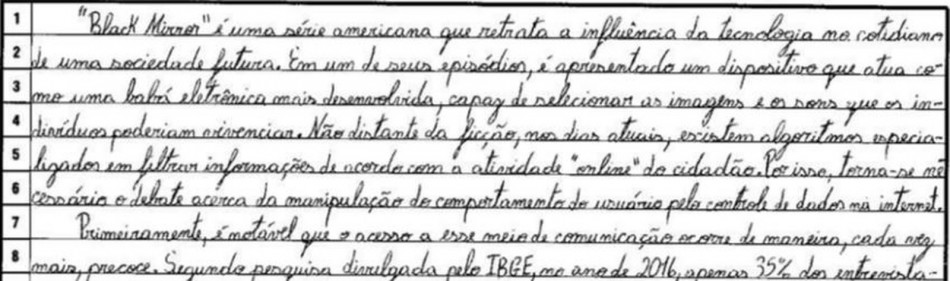 1 "Black Mirror" é uma série americana que retrata a influência da tecnologia no cotidiano
2 de uma sociedade futura. Em um de seus episódios, é apresentado um dispositivo que atua co-
3 mo uma babá eletrônica mais desenvolvida, capaz de selecionar as imagens e os sons que os in-
4 divíduos poderiam vivenciar. Não distante da ficção, nos dias atuais, existem algoritmos especia-
5 lizados em filtrar informações de acordo com a atividade "online" do cidadão. Por isso, torna-se ne
6 cessário o debate acerca da manipulação do comportamento do usuário pelo controle de dados na internet.
7 Primeiramente, é notável que o acesso a esse meio de comunicação ocorre de maneira, cada vez
8 mais, precoce. Segundo pesquisa divulgada pelo IBGE, no ano de 2016, apenas 35% dos entrevista-